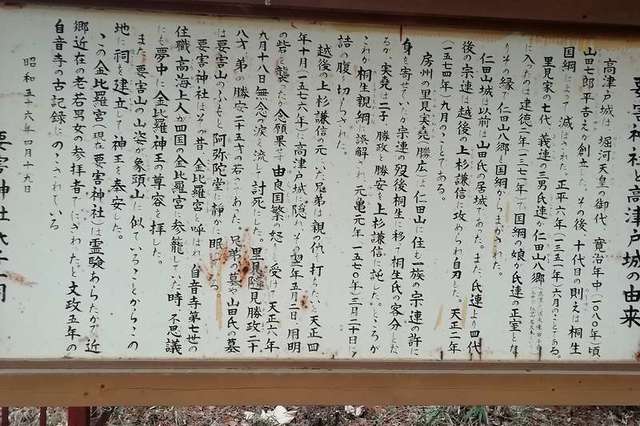 要害神社と高津戸城の由来
高津戸城は、堀河天皇の御代 寛治年中(一〇八〇年)頃
山田七郎平吉之が創立した。その後、十代目の則之は桐生
国綱によって滅ぼされた。正平六年(一三五一年)六月のことである。
里見家の七代 義連の三男氏連が仁田山八郷
に入ったのは建徳二年(一三七一年)で国綱の娘が氏連の正室とな
りその縁で仁田山八郷を国綱からまかされた。
仁田山城は以前は山田氏の居城であった。また、氏連より四代
後の宗連は越後の上杉謙信に攻められ自刃した。天正二年
(一五七四年)九月のことである。
房州の里見実堯 勝広は仁田山に住む一族の宗連の許に
身を寄せていたが宗連の歿後桐生に移り桐生氏の客分となった
が、実堯は二子 勝政と勝安を上杉謙信に託した。ところが
これが桐生親綱に誤解され元亀元年(一五七〇年)三月二十日に
詰め腹を切らされた。
越後の上杉謙信の元にいた兄弟は親の仇を打ちたいと天正四
年十月(一五七六年)高津戸城に隠れ、その翌年五月二日用明
の砦を襲ったが念願果さず由良国繁の怒りを受けて天正六年
九月十八日無念の涙を流して討死にした。里見随見勝政二十
八才、弟の勝安二十五才の若さであった。兄弟の墓は山田氏の墓
は要害山のふもと阿弥陀堂に静かに眠っている。
要害神社はその昔 金比羅宮と呼ばれ、自音寺第七世の
住職高海上人が四国の金比羅宮に参籠していた時、不思議
な夢の中で金比羅神王の尊容を拝した。
また、要害山の山姿が象頭山に似ていることからこの
地に祠を建立して神王を奉安した。
この金比羅宮(現在要害神社)は霊験あらたかで近
郷近在の老若男女の参拝者でにぎわったと文政五年の
自音寺の古記録にのこされている
昭和五十六年四月十九日
要害神社氏子一同